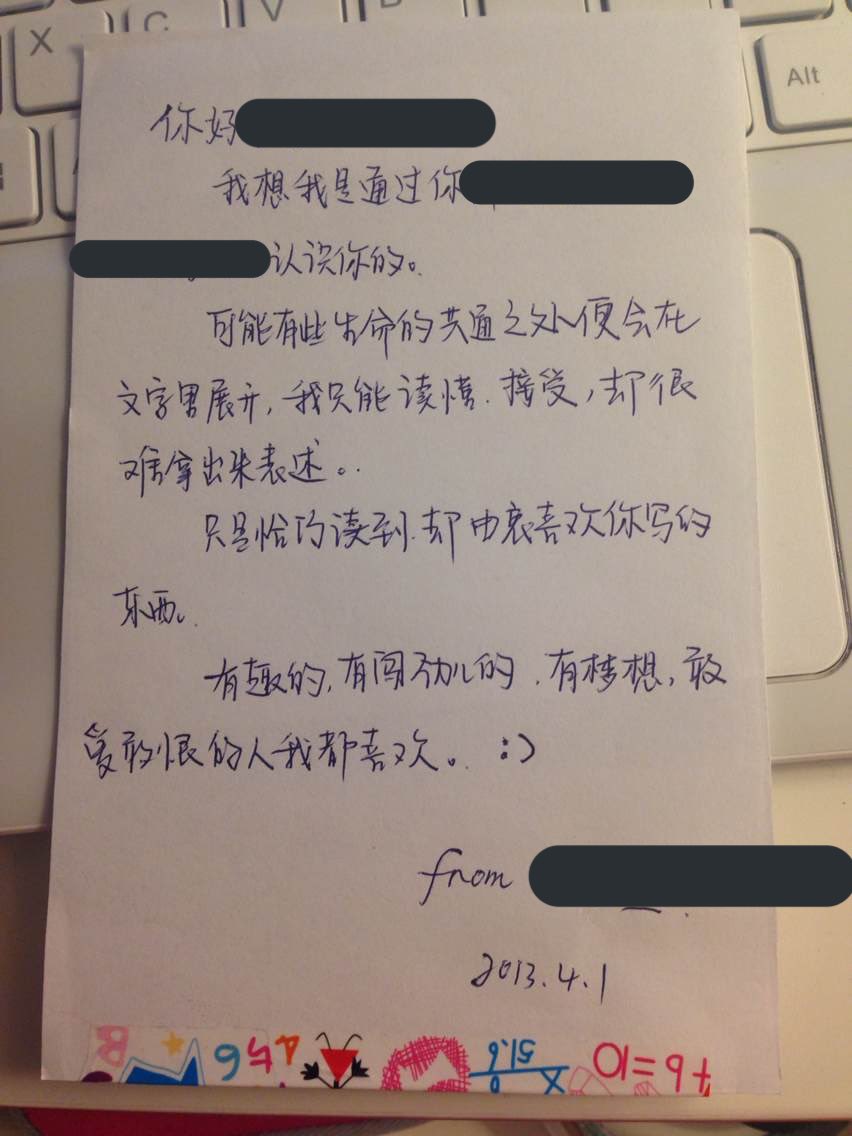 X C V B
Alt
你好
我想我是通过你
认识你的。
可能有些生命的共通之处便会在
文字里展开,我只能读懂.接受,却很
难拿出来表述。.
只是恰巧读到.却由衷喜欢你写的
东西。.
有趣的,有闯劲儿的.有梦想,敢
爱敢恨的人我都喜欢。:)
from
2013.4.1
+6=10
x 51.6
456